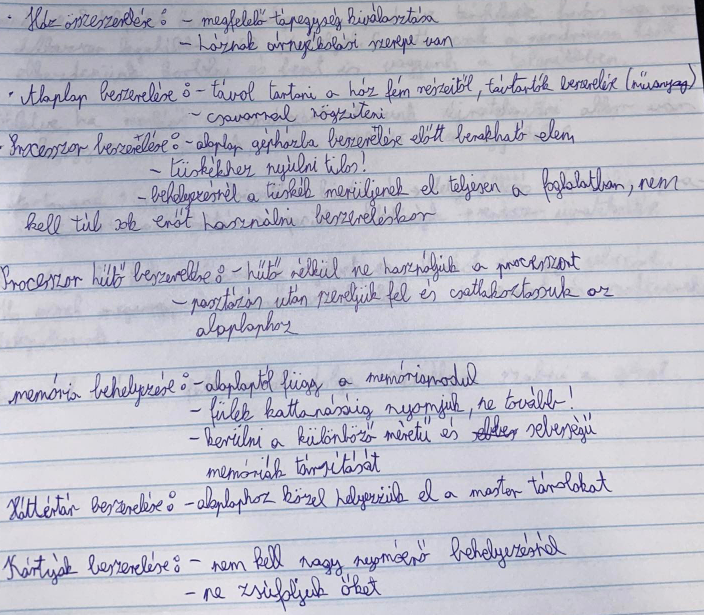 · Ház összeszerelése: - megfelelő tápegység kiválasztása
- háznak árnyékolási szerepe van
· Alaplap beszerelése: - távol tartani a ház fém részeitől, távtartók beszerelése (műanyag)
- csavarral rögzíteni
· Processzor beszerelése: - alaplap gépházba beszerelése előtt berakható elem
- tüskékhez nyúlni tilos!
- behelyezésnél a tüskék merüljenek el teljesen a foglalatban, nem
kell túl sok erőt használni beszereléskor
Processzor hűtő beszerelése: - hűtő nélkül ne használjuk a processzort
- pasztázás után szereljük fel és csatlakoztassuk az
alaplaphoz
memória behelyezése: - alaplaptól függ a memóriamodul
- fülek kattanásáig nyomjuk, ne tovább!
- kerülni a különböző méretű és sebességű
memóriák társítását
Háttértár beszerelése: - alaplaphoz közel helyezzük el a master tárolókat
Kártyák beszerelése: - nem kell nagy nyomóerő behelyezésnél
- ne zsúfoljuk őket